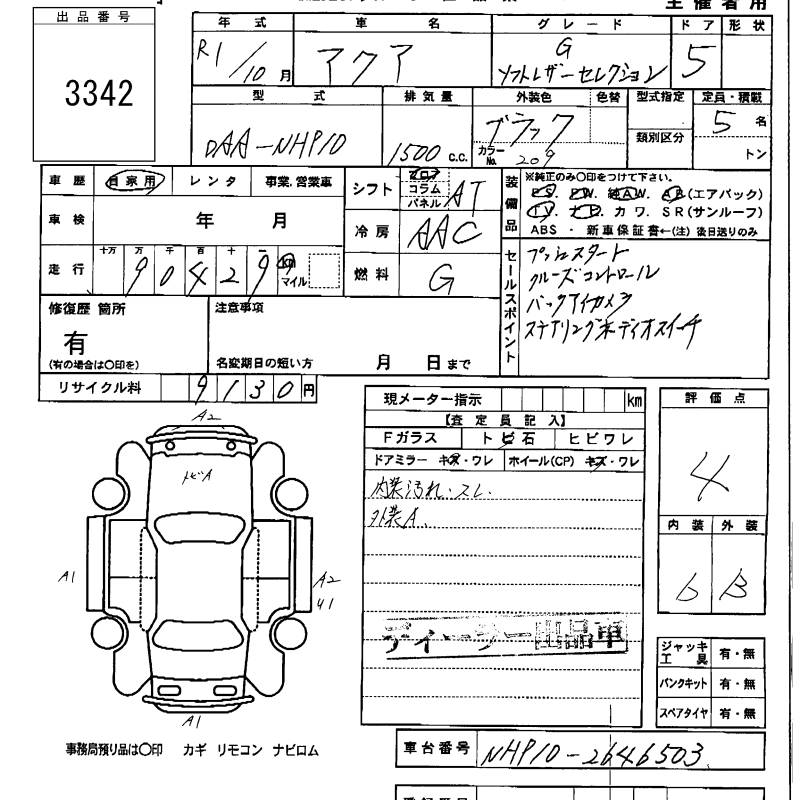 主催者用
出品番号
3342
年式 車名 グレード ドア 形状
R1/10月 アクア G ソフトレザーセレクション 5
型式 排気量 外装色 色替 型式指定 定員・積載
DAA-NHP10 1500 c.c. ブラック カラーNo. 209 類別区分 5名 トン
車歴 自家用 レンタ 事業.営業車
シフト フロア コラム パネル AT
装備品 ※純正のみ〇印をつけて下さい。
PS. PW. 純AW. AB(エアバック)
TV. ナビ. カワ. SR(サンルーフ)
ABS ・ 新車保証書←(注) 後日送りのみ
車検 年 月
冷房 AAC
走行 十万 万 千 百 十 一
90429 km マイル
燃料 G
セールスポイント
プッシュスタート
クルーズコントロール
バックアイカメラ
ステアリングオーディオスイッチ
修復歴 箇所 注意事項
有
(有の場合は〇印を) 名変期日の短い方 月 日まで
リサイクル料 9130円
現メーター指示 km
【査定員記入】
Fガラス トビ石 ヒビワレ
ドアミラー キズ・ワレ ホイール(CP) キズ・ワレ
内装汚れ・スレ.
外装A.
ディーラー出品車
評価点
4
内装 外装
6 B
A2
トビA
A1
A2
U1
A1
ジャッキ工具 有・無
パンクキット 有・無
スペアタイヤ 有・無
事務局預り品は〇印 カギ リモコン ナビロム
車台番号 NHP10-2646503